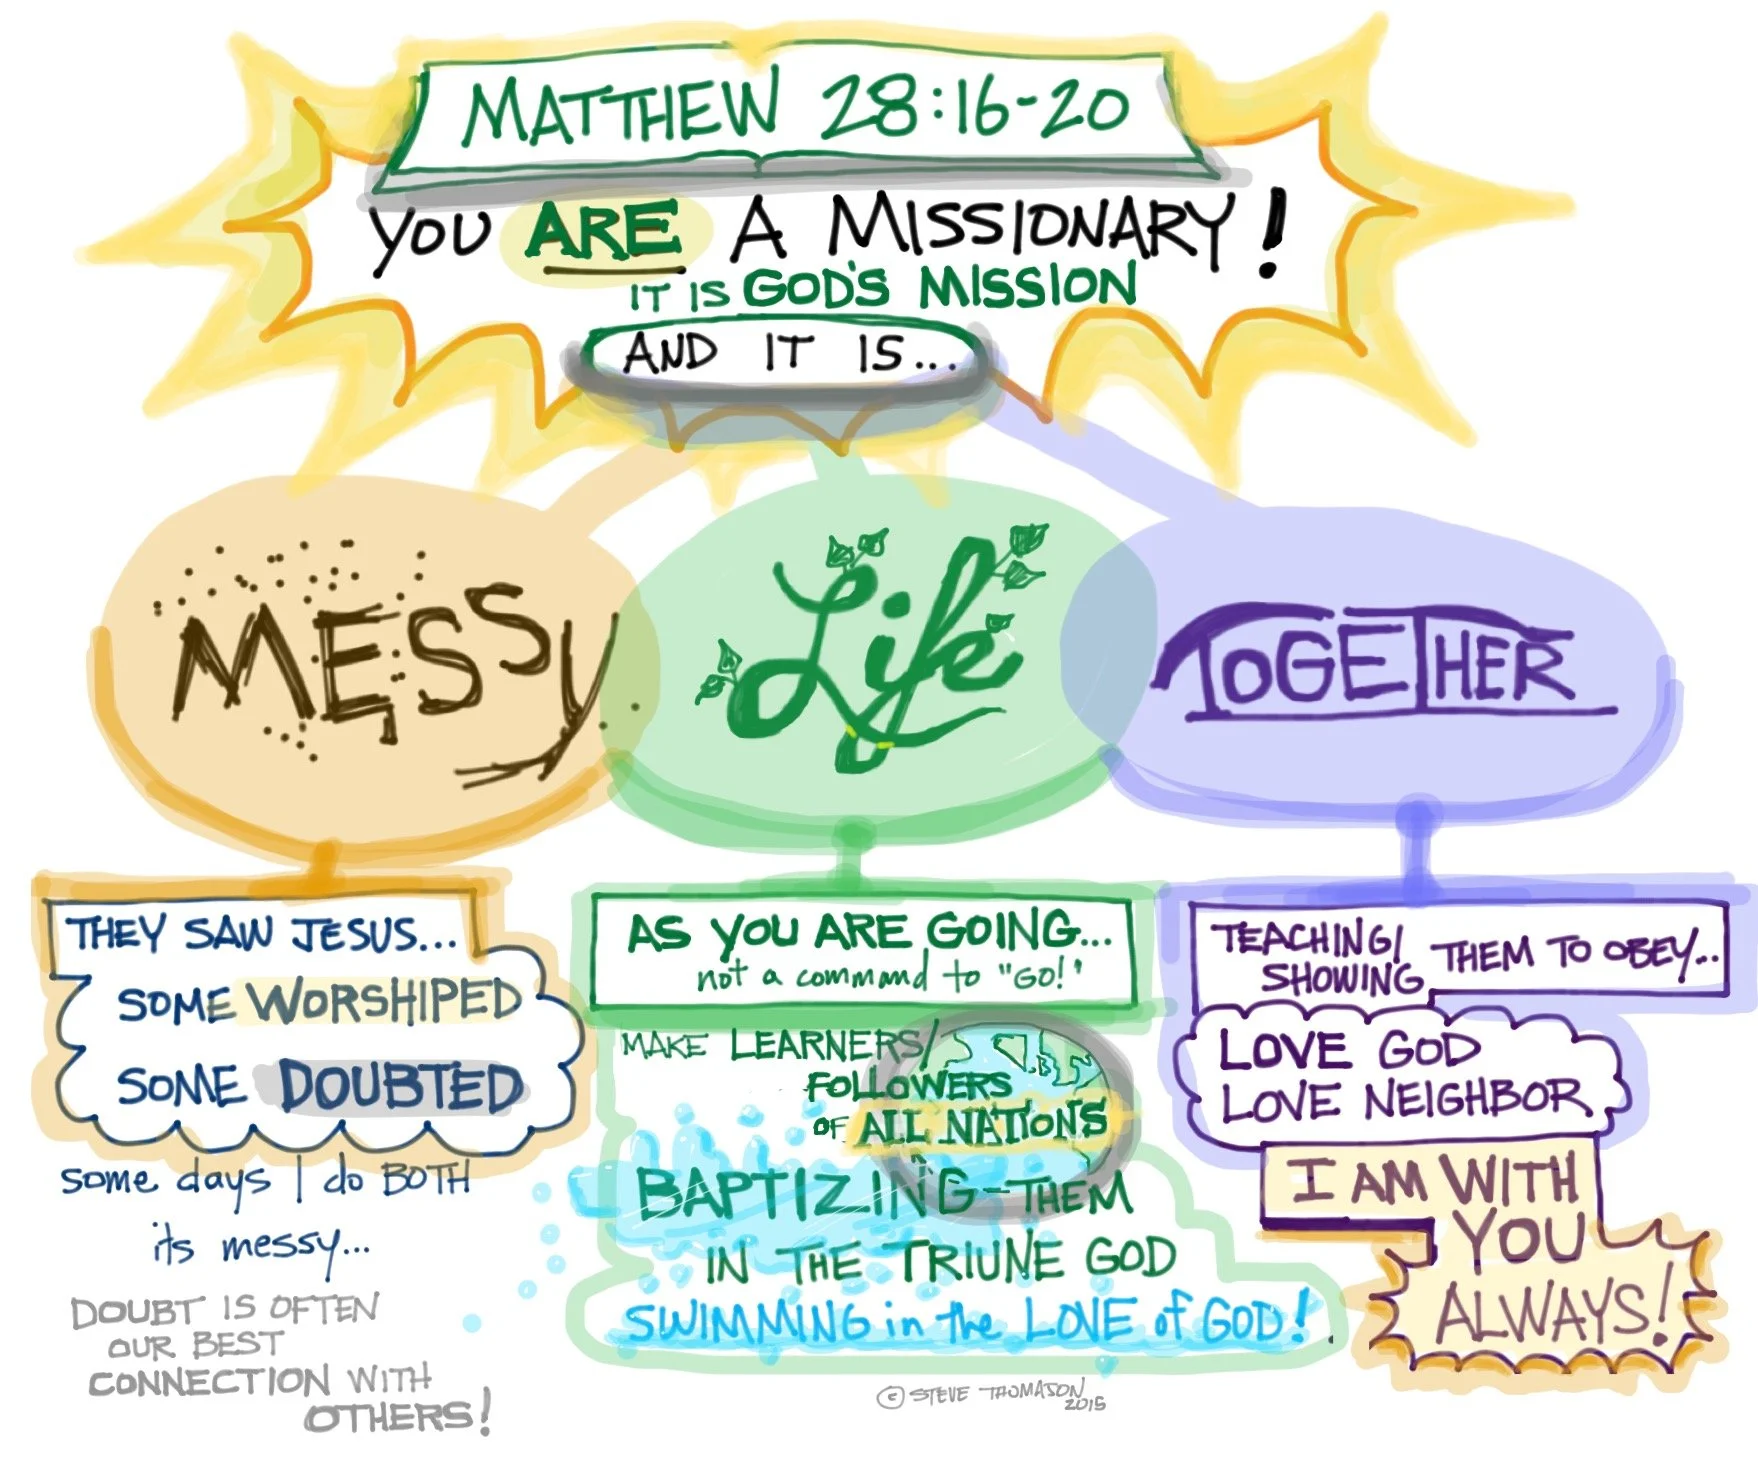 MATTHEW 28:16-20
YOU ARE A MISSIONARY!
IT IS GOD'S MISSION
AND IT IS...
MESSY
Life
TOGETHER
THEY SAW JESUS...
SOME WORSHIPED
SOME DOUBTED
some days I do BOTH
its messy...
DOUBT IS OFTEN
OUR BEST
CONNECTION WITH
OTHERS!
AS YOU ARE GOING...
not a command to "GO!'
MAKE LEARNERS/
FOLLOWERS
OF ALL NATIONS
BAPTIZING-THEM
IN THE TRIUNE GOD
SWIMMING in the LOVE of GOD!
© STEVE THOMASON
2015
TEACHING/
SHOWING THEM TO OBEY...
LOVE GOD
LOVE NEIGHBOR
I AM WITH
YOU
ALWAYS!